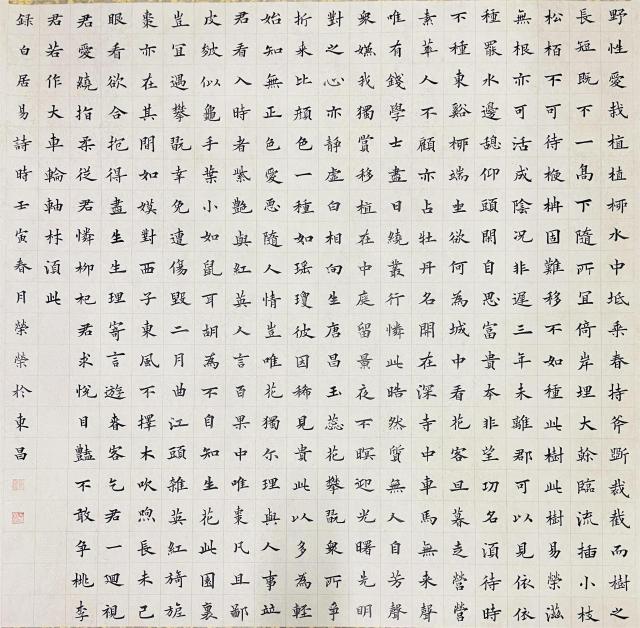 野性愛栽植植柳水中坻乘春持斧斫裁截而樹之
長短既不一高下隨所宜倚岸埋大幹臨流插小枝
松栢不可待楩柟固難移不如種此樹此樹易榮滋
無根亦可活成陰况非遲三年未離郡可以見依依
種罷水邊憩仰頭閑自思富貴本非望功名須待時
不種東谿柳端坐欲何為城中看花客旦暮走營營
素華人不顧亦占牡丹名開在深寺中車馬無来聲
唯有錢學士盡日繞叢行憐此皓然質無人自芳聲
衆嫌我獨賞移植在中庭留景夜不暝迎光曙先明
對之心亦靜虛白相向生唐昌玉蕊花攀翫衆所爭
折来比顏色一種如瑶瓊彼因稀見貴此以多為輕
始知無正色愛惡隨人情豈唯花獨尔理與人事竝
君看入時者紫艷與紅英人言百果中唯棗凡且鄙
皮皴似龜手葉小如鼠耳胡為不自知生花此園裏
豈宜遇攀翫幸免遭傷毀二月曲江頭雜英紅旖旎
棗亦在其間如嫫對西子東風不擇木吹煦長未已
眼看欲合抱得盡生生理寄言遊春客乞君一迴視
君愛繞指柔従君憐柳杞君求悅目豔不敢爭桃李
君若作大車輪軸材須此
録白居易詩時壬寅春月榮榮於東昌